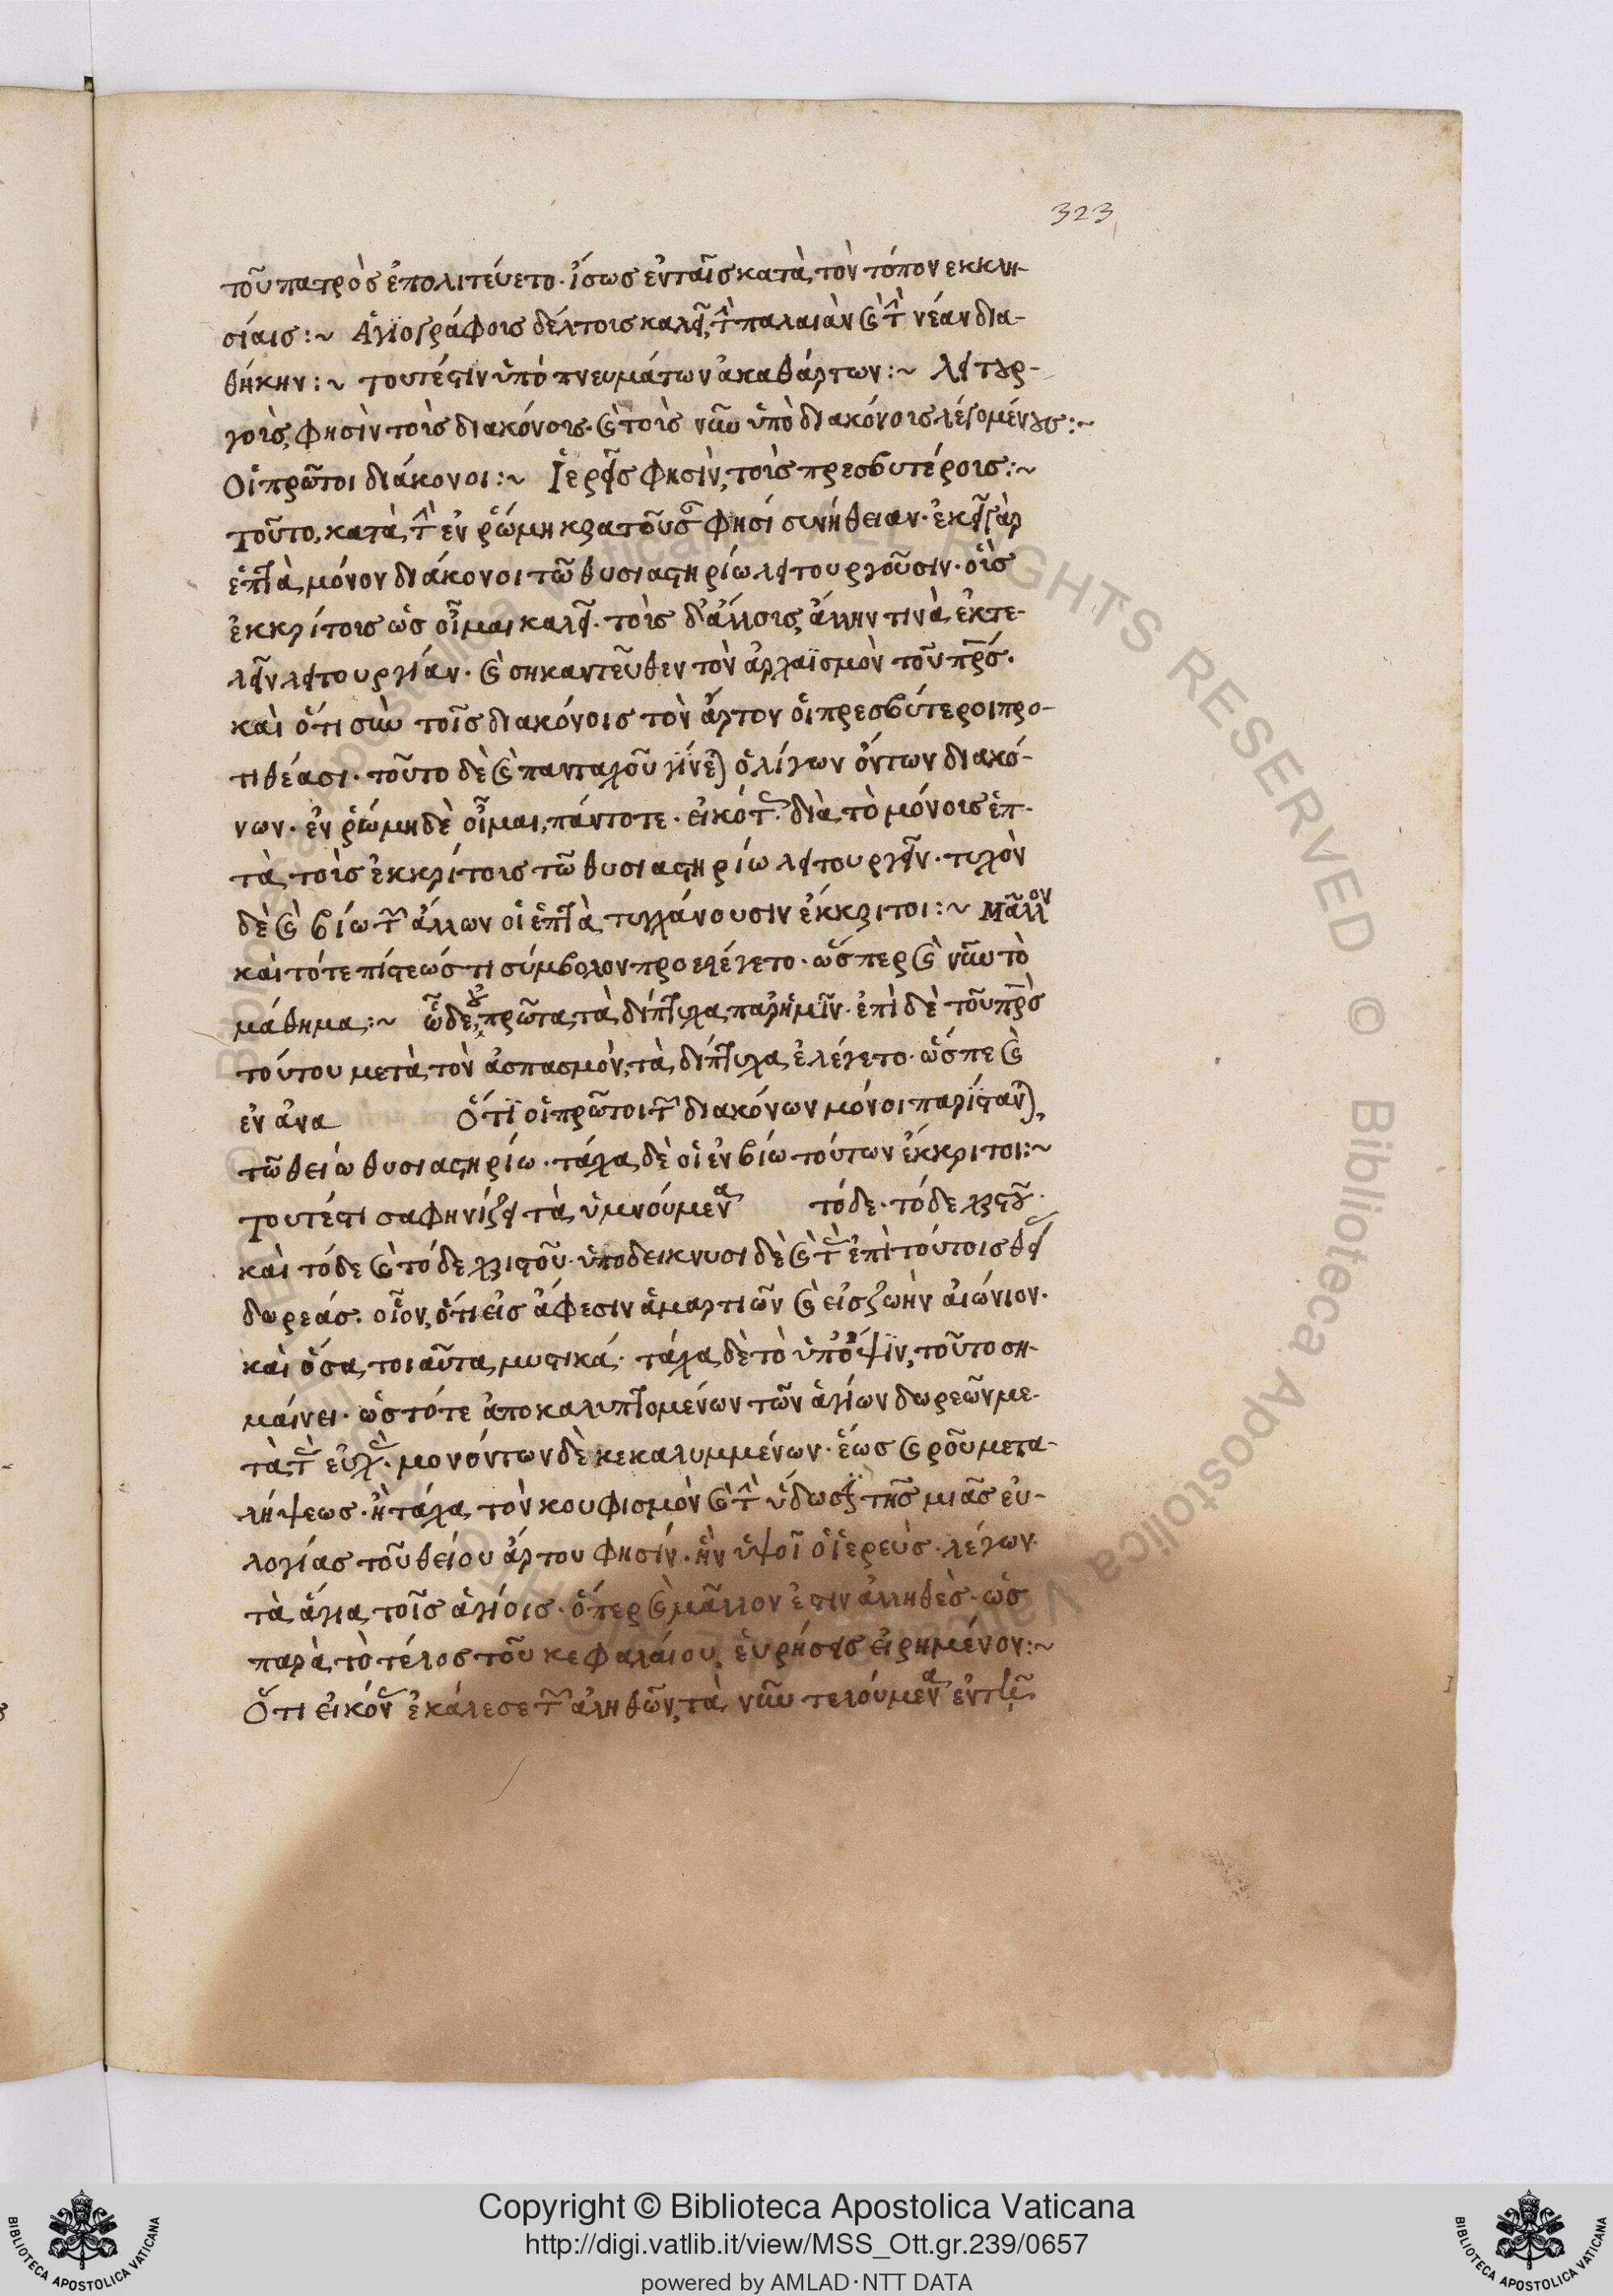 323
τοῦ πατρὸς ἐπολιτεύετο· ἴσως ἐν ταῖς κατὰ τὸν τόπον ἐκκλη-
σίαις :~ Ἁγιογράφοις δέλτοις καλεῖ, τὴν παλαιὰν καὶ τὴν νέαν δια-
θήκην :~ τουτέστιν ὑπὸ πνευμάτων ἀκαθάρτων :~ λειτουρ-
γοῖς, φησὶν τοῖς διακόνοις· καὶ τοῖς νῦν ὑπὸ διακόνοις λεγομένους :~
Οἱ πρῶτοι διάκονοι :~ Ἱερεῖς φησὶν, τοῖς πρεσβυτέροις :~
τοῦτο, κατὰ τὴν ἐν ῥώμη κρατοῦσαν φησί συνήθειαν· ἐκεῖ γὰρ
ἑπτὰ μόνον διάκονοι τῶ θυσιαστηρίω λειτουργοῦσιν· οἷς
ἐκκρίτοις ὡς οἶμαι καλεῖ· τοῖς δ' ἄλλοις, ἄλλην τινὰ ἐκτε-
λεῖν λειτουργίαν· καὶ σὴ κἀντεῦθεν τὸν ἀρχαϊσμὸν τοῦ πρς·
καὶ ὅτι σὺν τοῖς διακόνοις τὸν ἄρτον οἱ πρεσβύτεροι προ-
τιθέασι· τοῦτο δὲ καὶ πανταχοῦ γίνεται ὀλίγων ὄντων διακό-
νων· ἐν ῥώμη δὲ οἶμαι, πάντοτε· εἰκότως διὰ τὸ μόνοις ἑπ-
τὰ τοῖς ἐκκρίτοις τῶ θυσιαστηρίω λειτουργεῖν· τυχὸν
δὲ καὶ βίω τῶν ἄλλων οἱ ἑπτὰ τυγχάνουσιν ἔκκριτοι :~ Μᾶλλον
καὶ τότε πίστεώς τι σύμβολον προελέγετο· ὥσπερ καὶ νῦν τὸ
μάθημα :~ ὧδε, οὐ πρῶτα, τὰ δίπτυχα παρ' ἡμῖν· ἐπὶ δὲ τοῦ πρς
τούτου μετὰ τὸν ἀσπασμὸν, τὰ δίπτυχα ἐλέγετο· ὥσπε καὶ
ἐν ἀνα Ὅτι οἱ πρῶτοι τῶν διακόνων μόνοι παρίστανται,
τῶ θείω θυσιαστηρίω· τάχα δὲ οἱ ἐν βίω τούτων ἔκκριτοι :~
τουτέστι σαφηνίζει τὰ ὑμνούμενα τόδε· τόδε χριστοῦ·
καὶ τόδε καὶ τόδε χριστοῦ· ὑποδεικνυσι δὲ καὶ τὰς ἐπὶ τούτοις θείας
δωρεάς· οἷον, ὅτι εἰς ἄφεσιν ἁμαρτιῶν καὶ εἰς ζωὴν αἰώνιον·
καὶ ὅσα τοιαῦτα μυστικά· τάχα δὲ τὸ ὑπ' ὄψιν, τοῦτο ση-
μαίνει· ὡς τότε ἀποκαλυπτομένων τῶν ἁγίων δωρεῶν με-
τὰ τὰς εὐχὰς· μονόντων δὲ κεκαλυμμένων· ἕως καιροῦ μετα-
λήψεως· ἢ τάχα τὸν κουφισμὸν καὶ τὴν ὕψωσιν τῆς μιᾶς εὐ-
λογίας τοῦ θείου ἄρτου φησίν· ἣν ὑψοῖ ὁ ἱερεὺς· λέγων·
τὰ ἅγια τοῖς ἁγίοις· ὅπερ καὶ μᾶλλον ἐστιν ἀλληθὲς· ὡς
παρὰ τὸ τέλος τοῦ κεφαλαίου εὑρήσεις εἰρημένον :~
Ὅτι εἰκόνας ἐκάλεσε τῶν ἀληθῶν, τὰ νῦν τελούμενα ἐν τῆ
Copyright © Biblioteca Apostolica Vaticana
http://digi.vatlib.it/view/MSS_Ott.gr.239/0657
powered by AMLAD·NTT DATA